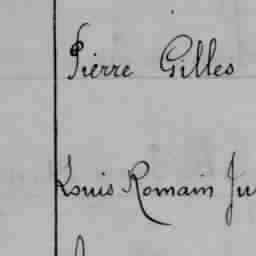 Pierre Gilles
Louis Romain Ju